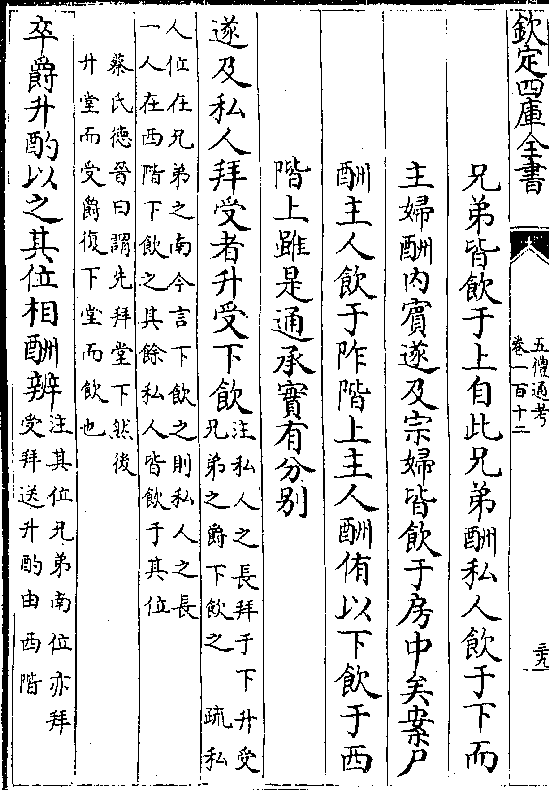 欽定四庫全書
五禮通考
卷一百十二
三九
兄弟皆飲于上自此兄弟酬私人飲于下而
主婦酬内賓遂及宗婦皆飲于房中矣案尸
酬主人飲于阼階上主人酬侑以下飲于西
階上雖是通承實有分别
遂及私人拜受者升受下飲
注私人之長拜于下升受
兄弟之爵下飲之 疏私
人位在兄弟之南今言下飲之則私人之長
一人在西階下飲之其餘私人皆飲于其位
蔡氏德晉曰謂先拜堂下然後
升堂而受爵復下堂而飲也
卒爵升酌以之其位相酬辨
注其位兄弟南位亦拜
受拜送升酌由西階